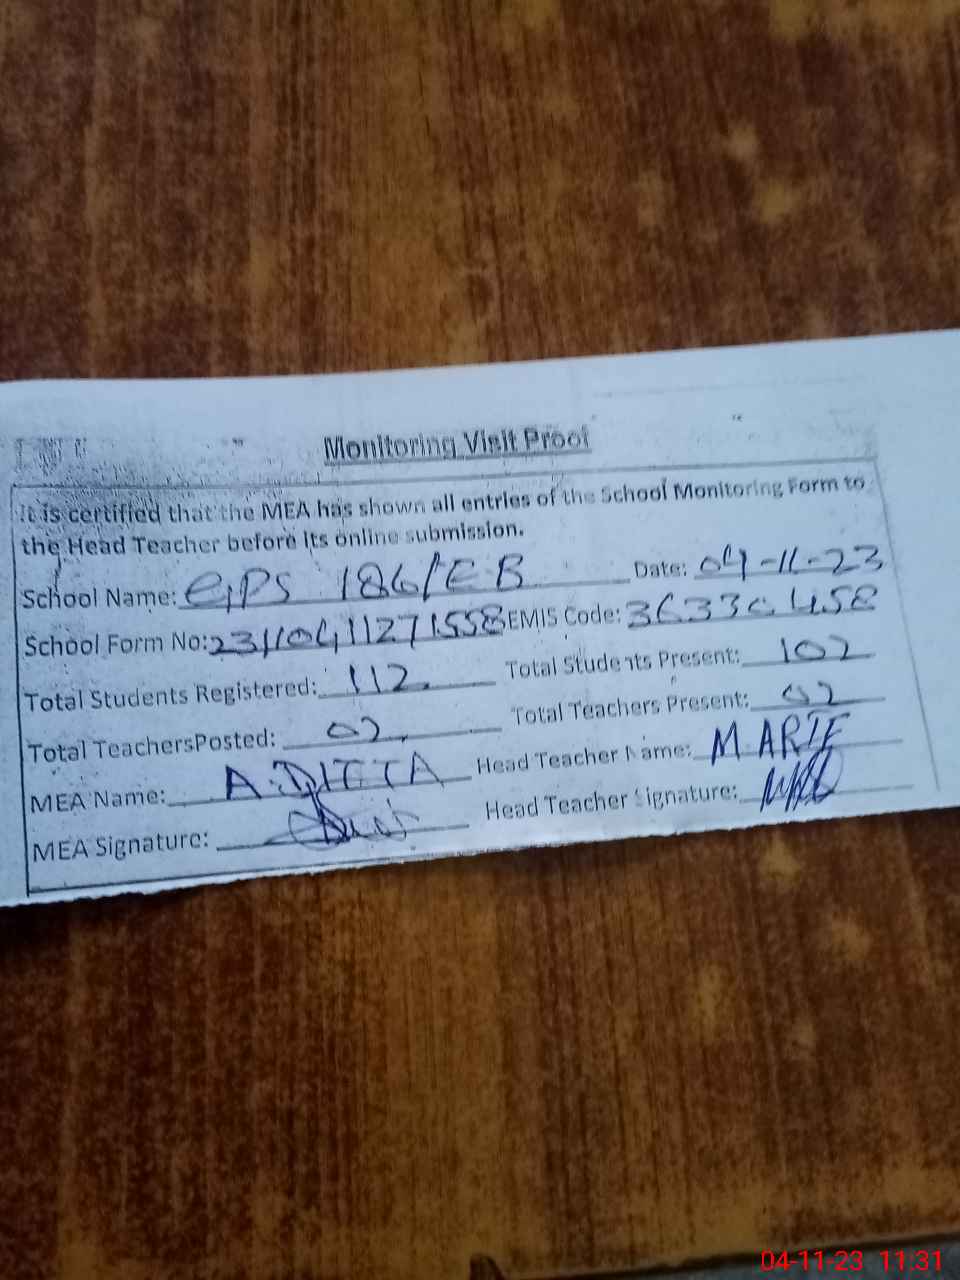 Monitoring Visit Proof
It is certified that the MEA has shown all entries of the School Monitoring Form to
the Head Teacher before its online submission.
School Name: GPS 186/EB Date: 04-11-23
School Form No: 231104112711558 EMIS Code: 36330458
Total Students Registered: 112 Total Students Present: 102
Total TeachersPosted: 02 Total Teachers Present: 02
MEA Name: A.DITTA Head Teacher Name: M.ARIF
MEA Signature: Head Teacher Signature:
04-11-23 11:31